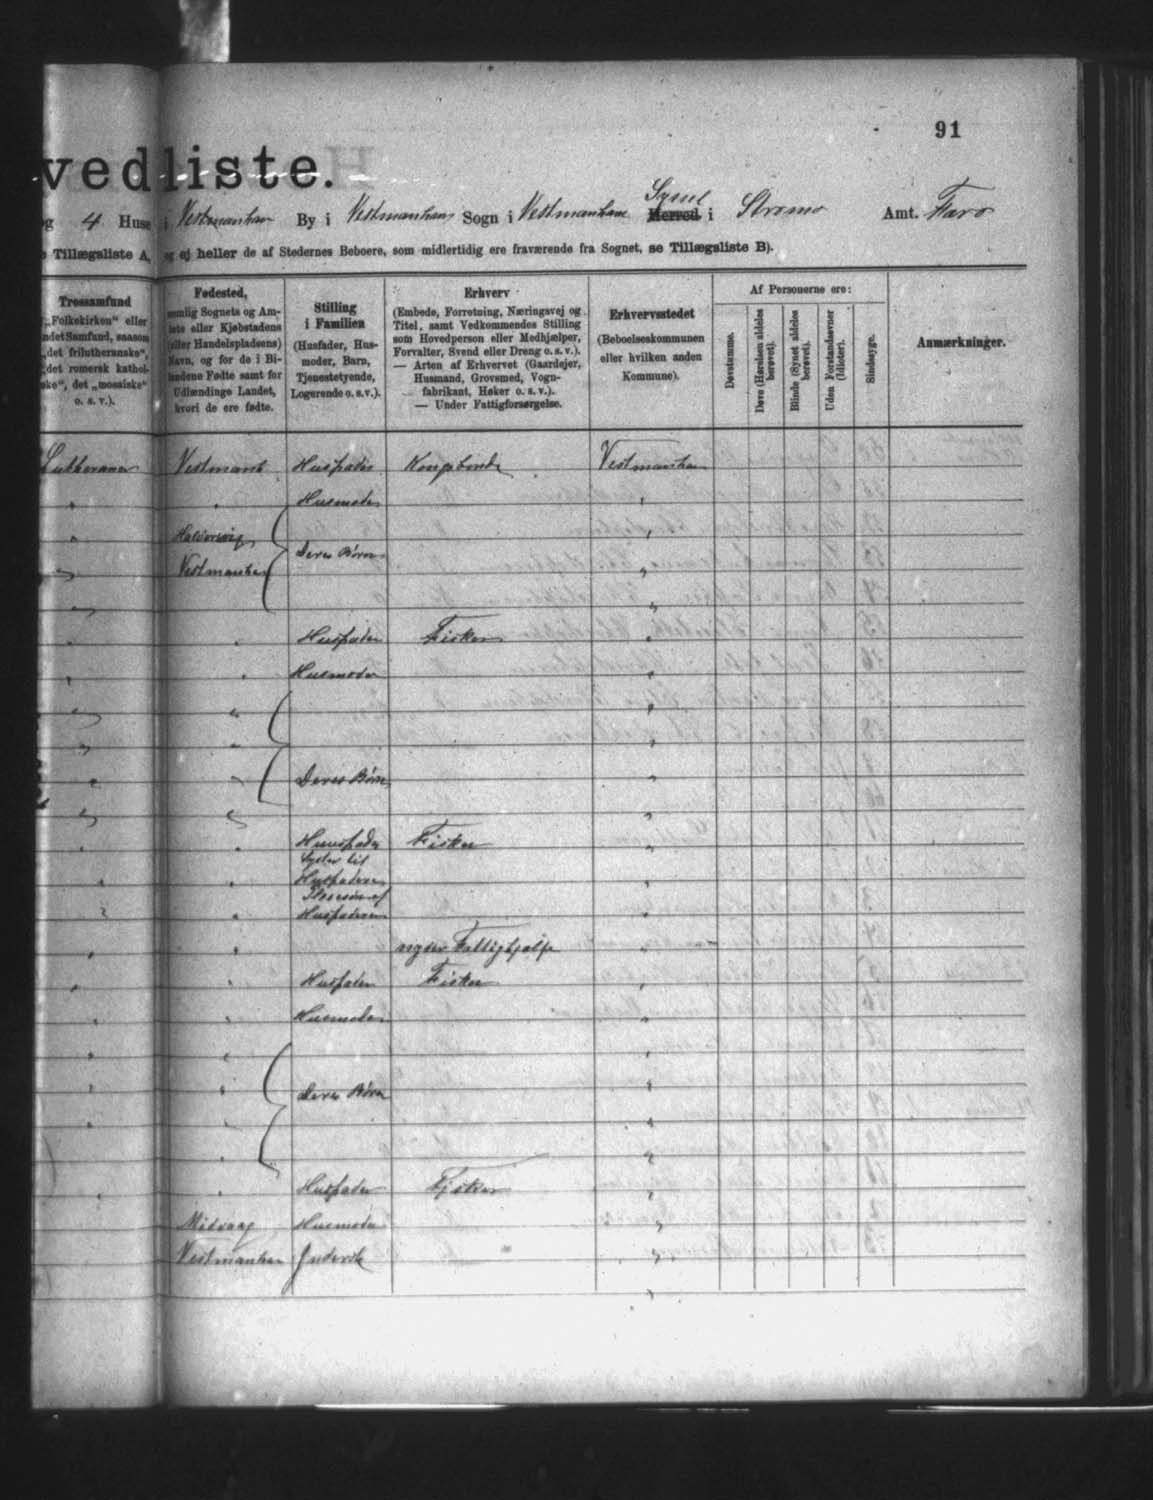 91
vedliste.
og 4 Huse i Vestmanhavn By i Vestmanhavn Sogn i Vestmanhavn Syssel Herred i Strømø Amt. Færø
Tillægsliste A, og ej heller de af Stedernes Beboere, som midlertidig ere fraværende fra Sognet, se Tillægsliste B).
Trossamfund
„Folkekirken" eller
andet Samfund, saasom
„det frilutheranske",
„det romersk kathol-
ske", det „mosaiske"
o. s. v.).
Fødested,
nemlig Sognets og Am-
tets eller Kjøbstadens
(eller Handelspladsens)
Navn, og for de i Bi-
landene Fødte samt for
Udlændinge Landet,
hvori de ere fødte.
Stilling
i Familien
(Husfader, Hus-
moder, Barn,
Tjenestetyende,
Logerende o. s. v.).
Erhverv
(Embede, Forretning, Næringsvej og
Titel, samt Vedkommendes Stilling
som Hovedperson eller Medhjælper,
Forvalter, Svend eller Dreng o. s. v.).
— Arten af Erhvervet (Gaardejer,
Husmand, Grovsmed, Vogn-
fabrikant, Høker o. s. v.).
— Under Fattigforsørgelse.
Erhvervsstedet
(Beboelseskommunen
eller hvilken anden
Kommune).
Af Personerne ere:
Døvstumme.
Døve (Hørelsen aldeles
berøvet).
Blinde (Synet aldeles
berøvet).
Uden Forstandsevner
(Idioter).
Sindssyge.
Anmærkninger.
Lutheraner Vestmanh Husfader Kongsbonde Vestmanhavn
" " Husmoder "
" Halvorsvig "
" Vestmanhavn Deres Børn "
" "
" Husfader Fisker "
" " Husmoder "
" " "
" " "
" " Deres Børn "
" " "
" Husfader Fisker "
Syster til
" " Husfaderen "
Plejesøn af
" " Husfaderen "
" " nyder Fattighjælp "
" " Husfader Fisker "
" " Husmoder "
" " "
" " Deres Børn "
" " "
" "
" " Husfader Fisker "
Midvaag Husmoder "
Vestmanhavn Inderste "
"